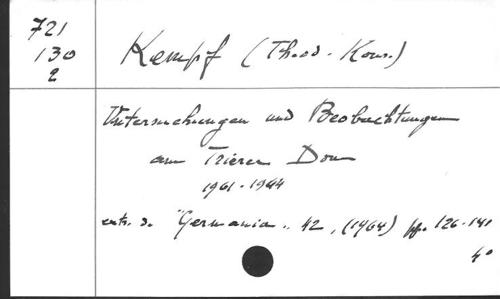 721
130
2
Kempf (Theod. Kons.)
Untersuchungen und Beobachtungen
am Trierer Dom
1961-1964
extr. d. "Germania" 42, (1964) pp. 126-141
4°